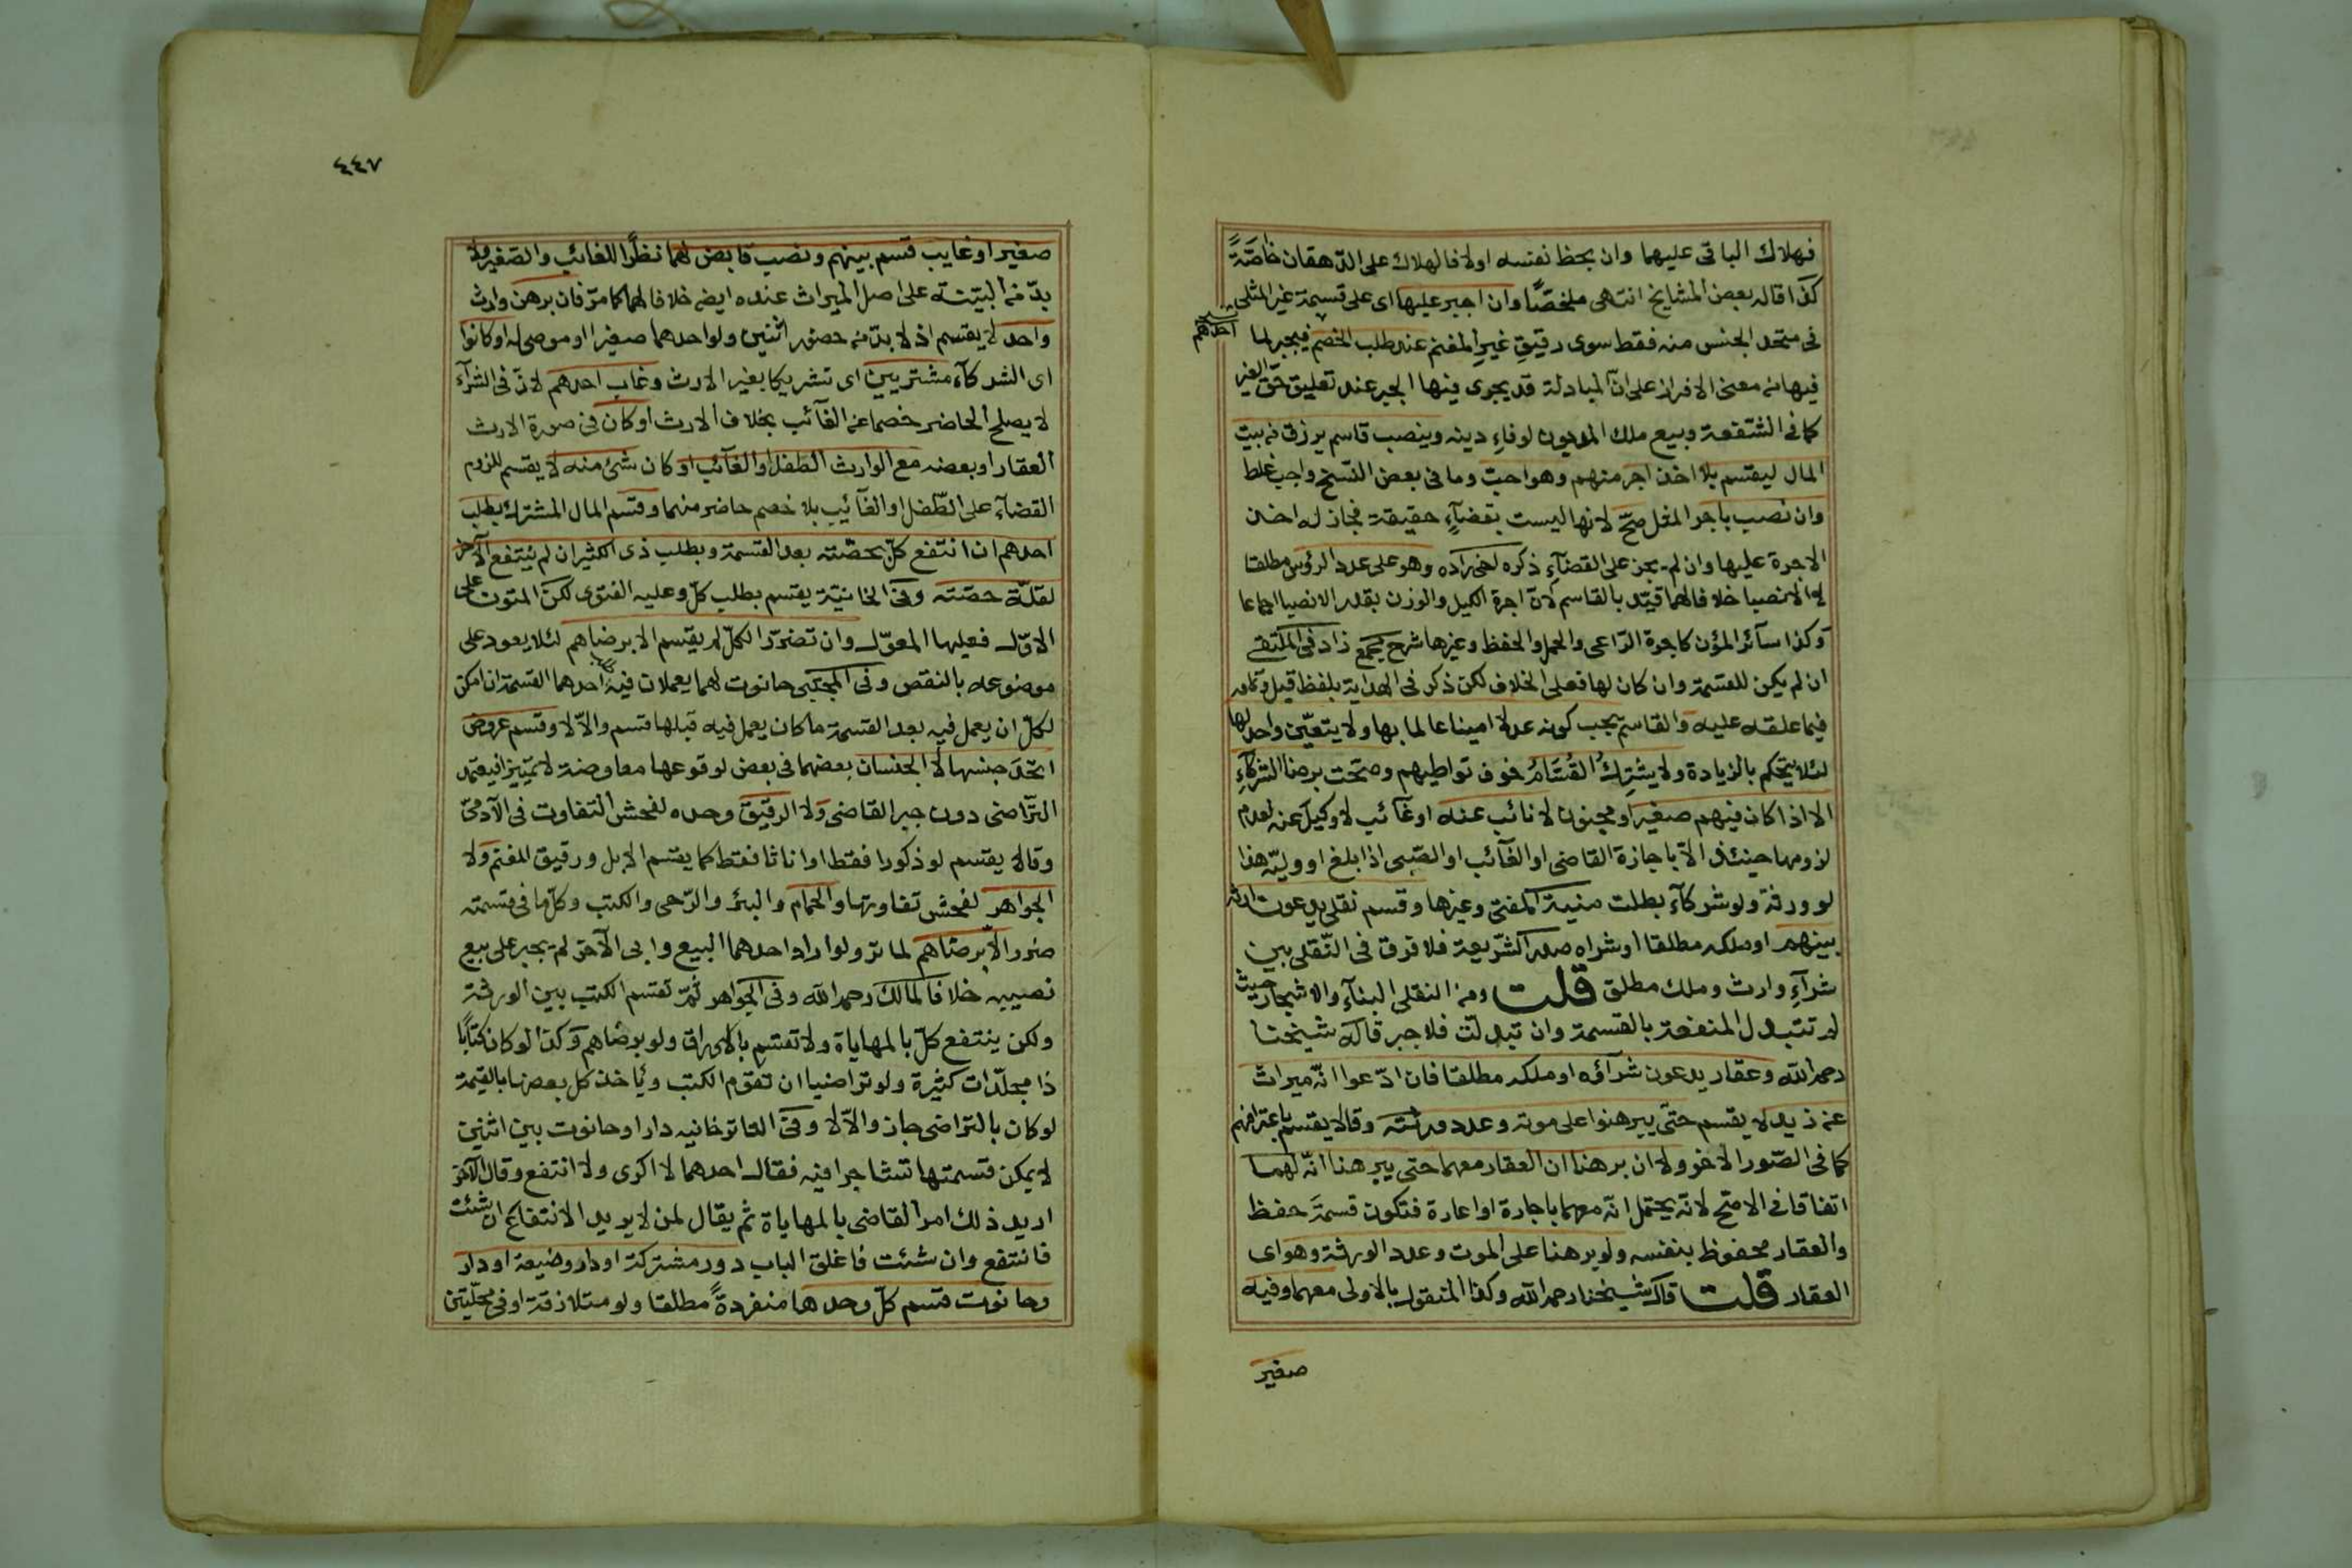 فهلاك الباقى عليهما وان بحظ نفسه اولا فالهلاك على الدهقان خاصّةً
كذا قاله بعض المشايخ انتهى ملخصًا وان اجبر عليها اى على قسمة غير المثلى
فى متحد الجنس منه فقط سوى رقيق غير المغنم عند طلب الخصم فيجبر لما
احدهم
فيها من معنى الافراز على انّ المبادلة قد يجرى فيها الجبر عند تعليق حق الغير
كما فى الشفعة وبيع ملك المديون لوفاء دينه وينصب قاسم يرزق من بيت
المال ليقسم بلا اخذ اجر منهم وهو احب وما فى بعض النسخ واجب غلط
وان نصب باجر المثل صحّ لانها ليست بقضاءٍ حقيقة فجاز له اخذ
الاجرة عليها وان لم يجز على القضاءِ ذكره اخى زاده وهو على عدد الرؤس مطلقا
لا الانصبا خلافا لهما قيّد بالقاسم لانّ اجرة الكيل والوزن بقدر الانصبا اجماعا
وكذا سآئر المؤن كاجرة الرّاعى والحمل والحفظ وغيرها شرح مجمع زاد فى الملتقى
ان لم يكن للقسمة وان كان لها فعلى الخلاف لكن ذكر فى الهداية بلفظ قيل وتمامه
فيما علقه عليه والقاسم يجب كونه عدلا امينا عالما بها ولا يتعيّن واحد لها
لئلا يتحكم بالزيادة ولا يشترك القُسّامُ خوف تواطيهم وصحّت برضا الشركآءِ
الا اذا كان فيهم صغير او مجنون لا نائب عنه او غآئب لا وكيل عنه لعدم
لزومها حينئذ الاّ باجازة القاضى او الغآئب او الصّبى اذا بلغ او وليّه هذا
لو ورثة ولو شركآء بطلت منية المفتى وغيرها وقسم نقلى يدعون ارثه
بينهم او ملكه مطلقا او شراه صدر الشّريعة فلا فرق فى النّقلى بين
شرآءِ وارث وملك مطلق قلت ومن النقلى البنآءِ والاشجار حيث
لم تتبدل المنفعة بالقسمة وان تبدلت فلا جبر قاله شيخنا
رحمه الله وعقار يدعون شرآؤه او ملكه مطلقا فان ادّعوا انّه ميراث
عن زيد لا يقسم حتّى يبرهنوا على موته وعدد ورثته وقالا يقسم باعترافهم
كما فى الصّور الاخر ولا ان برهنا ان العقار معهما حتى يبرهنا انّه لهما
اتفاقا فى الاصح لانّه يحتمل انّه معهما باجارة او اعارة فتكون قسمةَ حفظ
والعقار محفوظ بنفسه ولو برهنا على الموت وعدد الورثة وهو اى
العقار قلت قال شيخنا رحمه الله وكذا المنقول بالاولى معهما وفيه
صغير
٤٤٧
صغير او غايب قسم بينهم ونصب قابض لهما نظرًا للغائب والصّغير ولا
بدّ من البيّنة على اصل الميراث عنده ايضه خلافا لهما كما مرّ فان برهن وارث
واحد لا يقسم اذ لا بدّ من حضور اثنين ولو احدهما صغيرا او موصى له او كانوا
اى الشركآء مشتريين اى شركا بغير الارث وغاب احدهم لانّ فى الشرآء
لا يصلح الحاضر خصما عن الغآئب بخلاف الارث او كان فى صورة الارث
العقار او بعضه مع الوارث الطفل او الغآئب او كان شئ منه لا يقسم للزوم
القضآء على الطّفل او الغآئب بلا خصم حاضر منهما وقسم المال المشترك بطلب
احدهم ان انتفع كلّ بحصّته بعد القسمة وبطلب ذى الكثير ان لم ينتفع الاخر
لقلّة حصّته وفى الخانيّة يقسم بطلب كلّ وعليه الفتوى لكن المتون على
الاوّل فعليها المعوّل وان تضرّر الكلّ لم يقسم الا برضاهم لئلا يعود على
موضوعه بالنقص وفى المجتبى حانوت لهما يعملان فيه طلب احدهما القسمة ان امكن
لكلّ ان يعمل فيه بعد القسمة ما كان يعمل فيه قبلها قسم والاّ لا وقسم عروض
اتّحد جنسها لا الجنسان بعضهما فى بعض لوقوعها معاوضة لا تمييزا فيعتمد
التّراضى دون جبر القاضى ولا الرقيق وحده لفحش التفاوت فى الآدمىّ
وقالا يقسم لو ذكورا فقط او اناثا فقط كما يقسم الابل ورقيق المغنم ولا
الجواهر لفحش تفاوتها والحمام والبئر والرّحى والكتب وكلّ ما فى قسمته
ضرر الاّ برضاهم لما مرّ ولو اراد احدهما البيع وابى الآخر لم يجبر على بيع
نصيبه خلافا لمالك رحمه الله وفى الجواهر ثمّ تقسم الكتب بين الورثة
ولكن ينتفع كلّ بالمهاياة ولا تقسم بالاوراق ولو برضاهم وكذا لو كان كتابًا
ذا مجلّدات كثيرة ولو تراضيا ان تقوم الكتب وياخذ كل بعضها بالقيمة
لو كان بالتراضى جاز والاّ لا وفى التاترخانيه دار او حانوت بين اثنين
لا يمكن قسمتها تشاجرا فيه فقال احدهما لا اكرى ولا انتفع وقال الآخر
اريد ذلك امر القاضى بالمهاياة ثم يقال لمن لا يريد الانتفاع ان شئت
فانتفع وان شئت فاغلق الباب دور مشتركة او دار وضيعة او دار
وحانوت قسم كلّ وحدها منفردةً مطلقا ولو متلازقة او فى محلّتين